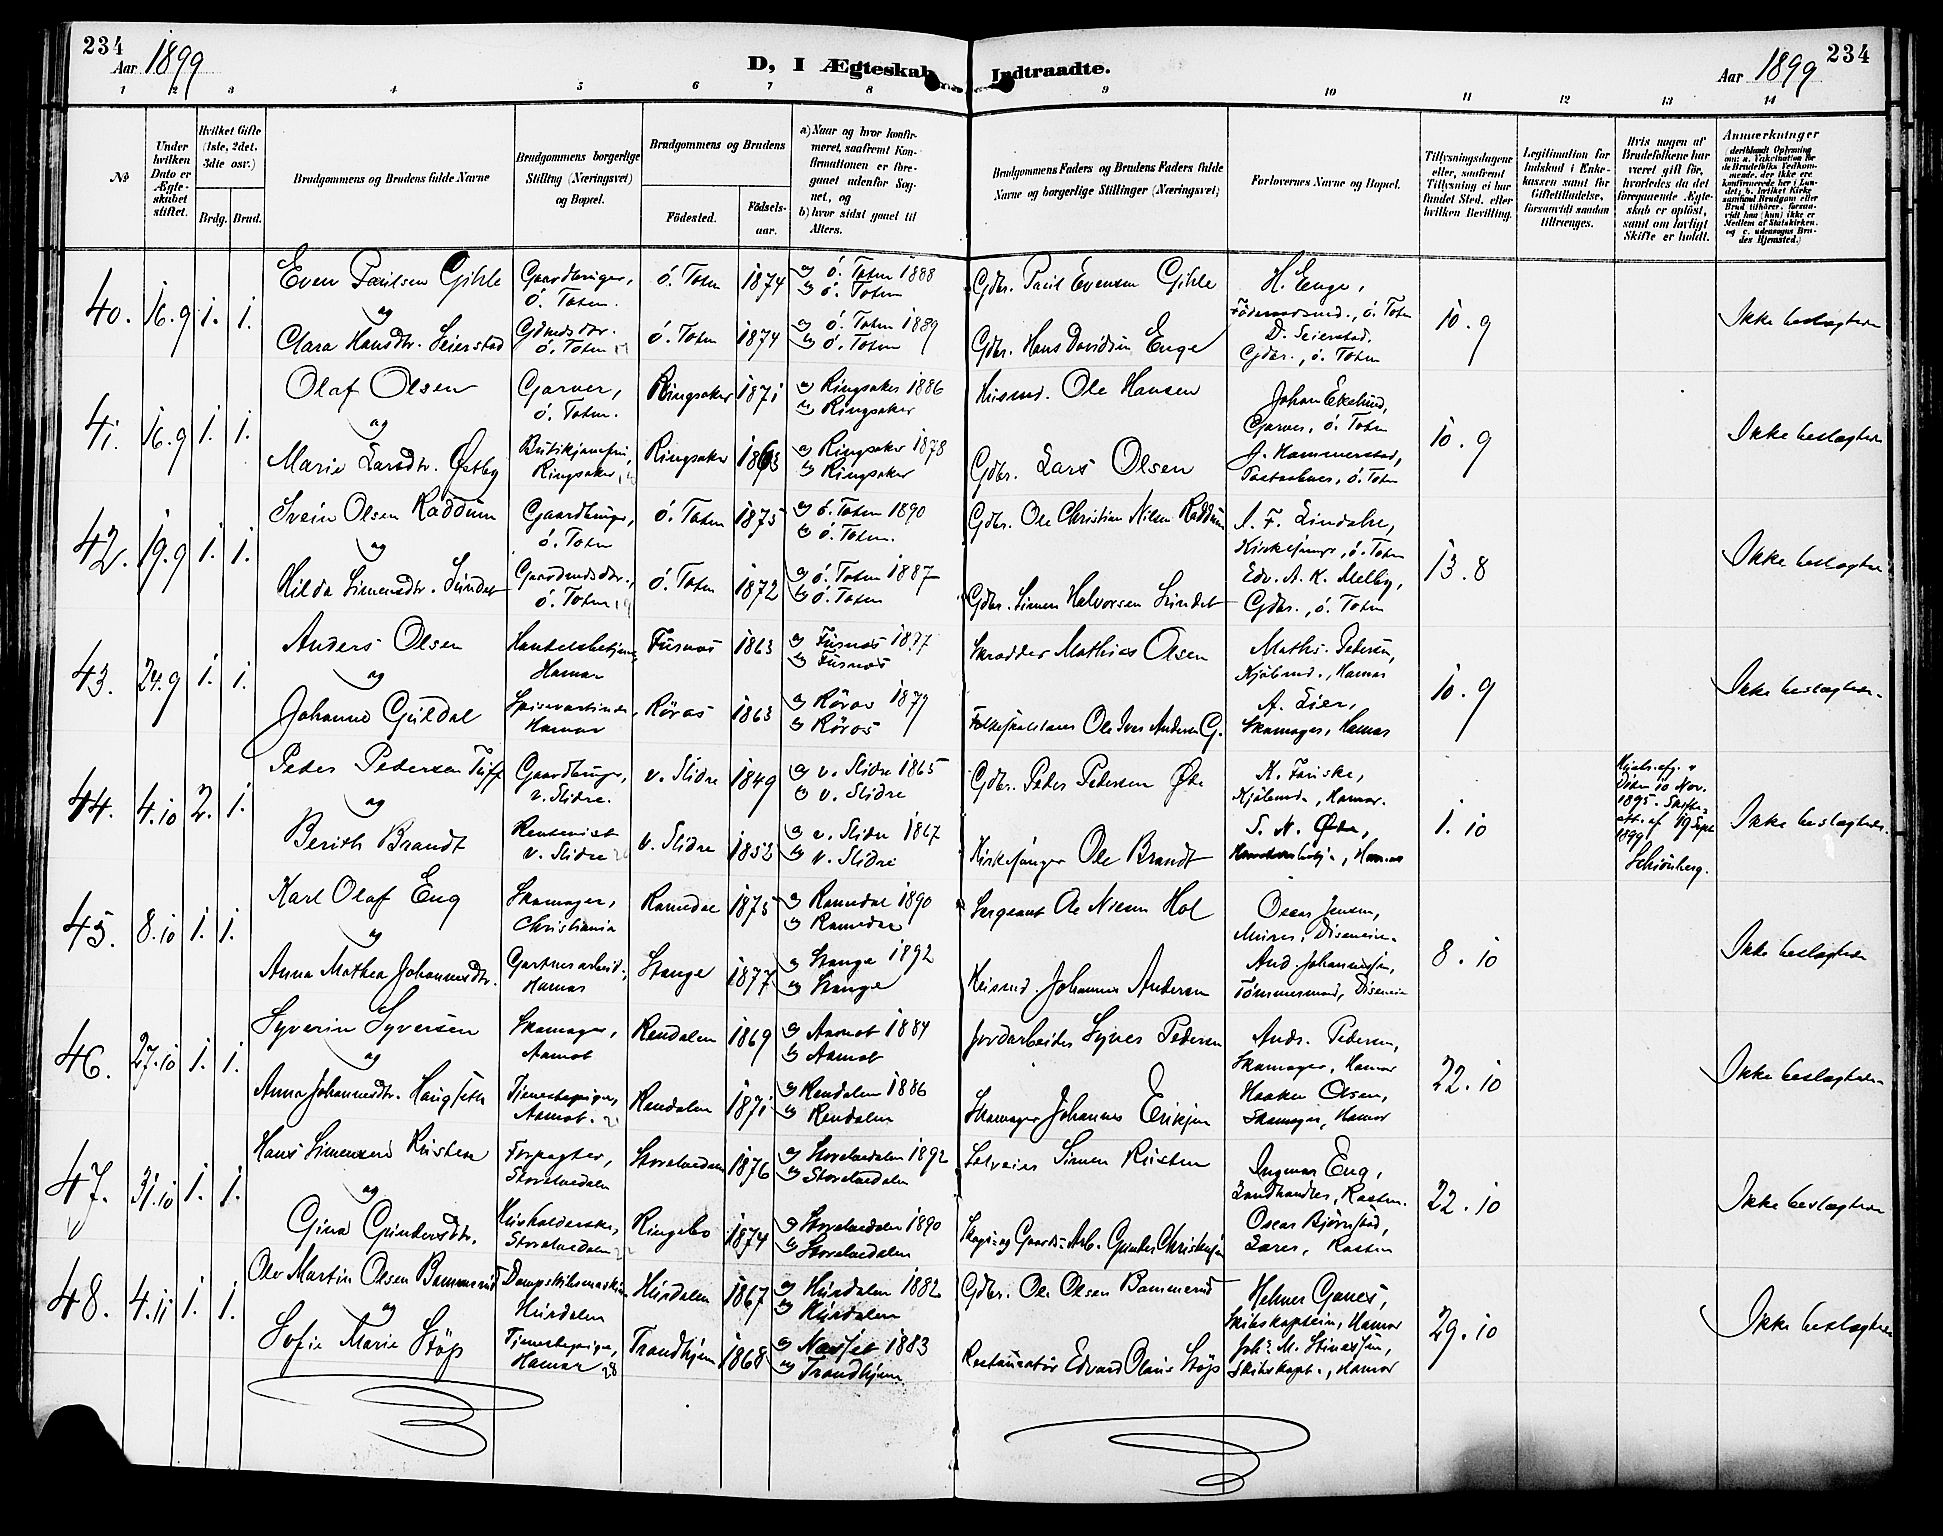 234
Aar 1899
D, I Ægteskab Indtraadte.
Aar 1899
234
1 2 3 4 5 6 7 8 9 10 11 12 13 14
No
Under hvilken Dato er Ægteskabet stiftet.
Hvilket Gifte (1ste, 2det, 3die osv.)
Brdg. Brud.
Brudgommens og Brudens fulde Navne
Brudgommens borgerlige Stilling (Næringsvei) og Bopæl.
Brudgommens og Brudens
Fødested.
Fødselsaar.
a) Naar og hvor konfirmeret, saafremt Konfirmationen er foregaaet udenfor Sognet, og
b) hvor sidst gaaet til Alters.
Brudgommens Faders og Brudens Faders fulde Navne og borgerlige Stillinger (Næringsvei)
Forlovernes Navne og Bopæl.
Tillysningsdagene eller, saafremt Tillysning ei har fundet Sted, efter hvilken Bevilling.
Legitimation for Indskud i Enkekassen samt for Giftetilladelse, forsaavidt saadan tiltrænges.
Hvis nogen af Brudefolkene har været gift før, hvorledes da det foregaaende Ægteskab er opløst, samt om lovligt Skifte er holdt.
Anmærkninger
40. 16.9 1. 1.
Even Paulsen Gihle
og
Clara Hansdtr. Seierstad
Gaardbruger, ö. Toten.
Gdmdsdtr. ö. Toten
ö. Toten 1874
ö. Toten 1874
a) ö. Toten 1888
b) ö. Toten
a) ö. Toten 1889
b) ö. Toten
Gdbr. Paul Evensen Gihle
Gdbr. Hans Davidsen Enge
H. Enge,
Föderaadsmd., ö. Toten
D. Seierstad,
Gdbr., ö. Toten
10.9
Ikke beslægtede
41. 16.9 1. 1.
Olaf Olsen
og
Marie Larsdtr. Østby
Garver, ö. Toten.
Butikjomfru, Ringsaker
Ringsaker 1871
Ringsaker 1863
a) Ringsaker 1886
b) Ringsaker
a) Ringsaker 1878
b) Ringsaker
Husmd. Ole Hansen
Gdbr. Lars Olsen
Johan Ekelund,
Garver, ö. Toten
J. Hammerstad,
ö. Toten
10.9
Ikke beslægtede
42. 19.9 1. 1.
Svein Olsen Raddum
og
Hilda Simensdtr. Sundet
Gaardbruger, ö. Toten
Gaardmdsdtr., ö. Toten
ö. Toten 1875
ö. Toten 1872
a) ö. Toten 1890
b) ö. Toten.
a) ö. Toten 1887
b) ö. Toten
Gdbr. Ole Christian Nilsen Raddum
Gdbr. Simen Halvorsen Sundet
Kirkesanger, ö. Toten
Edv. A. K. Melby,
Gdbr., ö. Toten
13.8
Ikke beslægtede
43. 24.9 1. 1.
Anders Olsen
og
Johanne Guldal
Handelsbetjent, Hamar
Spisevertinde, Hamar
Furnæs 1863
Röros 1863
a) Furnæs 1877
b) Furnæs
a) Röros 1877
b) Röros
Skrædder Mathias Olsen
Folkeskolelærer Ole Iver Andersen G.
Maths. Pedersen,
Kjöbmd., Hamar
A. Lier,
Skomager, Hamar
10.9
Ikke beslægtede.
44. 4.10 2. 1.
Peder Pedersen
og
Berith Brandt
Gaardbruger, v. Slidre.
Rentenist v. Slidre
v. Slidre 1849
v. Slidre 1853
a) v. Slidre 1865
b) v. Slidre
a) v. Slidre 1867
b) v. Slidre
Gdbr. Peder Pedersen Øde
Kirkesanger Ole Brandt
K. Fariske,
Kjöbmd., Hamar.
S. N. Øde,
Hamar
1.10
10 Nov.
1895. Skifteatt. af 19 Sept
1899
Schiönberg.
Ikke beslægtede.
45. 8.10 1. 1.
Karl Olaf Eng
og
Anna Mathea Johannesdtr.
Skomager, Christiania
Gartnerarbeid., Hamar
Romedal 1875
Stange 1877
a) Romedal 1890
b) Romedal
a) Stange 1892
b) Stange
Sergeant Ole Nilsen Hol
Husmd. Johannes Andersen
Oscar Jensen,
Murer, Disenein.
And. Johannessen,
Tömmermand, Disenein
8.10
Ikke beslægtede
46. 27.10 1. 1.
Syverin Syversen
og
Anna Johannesdtr. Haugseth
Skomager, Aamot
Tjenestepige, Aamot.
Rendalen 1869
Rendalen 1871
a) Aamot 1884
b) Aamot
a) Rendalen 1886
b) Rendalen
Jordarbeider Syver Pedersen
Skomager Johannes Eriksen
Andr. Pedersen,
Skomager, Hamar
Haaken Olsen,
Skomager, Hamar
22.10
Ikke beslægtede.
47. 31.10 1. 1.
Hans Simensen Rusten
og
Gina Gundersdtr.
Forpagter, Storelvedalen
Husholderske, Storelvedalen
Storelvedalen 1876
Ringebo 1874
a) Storelvedalen 1892
b) Storelvedalen
a) Storelvedalen 1890
b) Storelvedalen
Selveier Simen Rusten
Skogs- og Gaards-Arb. Gunder Christensen
Ingmar Eng,
Landhandler, Rasten.
Oscar Björnstad,
Lærer, Rasten
22.10
Ikke beslægtede
48. 4.11 1. 1.
Ole Martin Olsen Bammerud
og
Sofie Marie Stöp
Dampskibsmaskin. Hurdalen
Tjenestepige, Hamar
Hurdalen 1867
Trondhjem 1868
a) Hurdalen 1882
b) Hurdalen
a) Næsset 1883
b) Trondhjem.
Gdbr. Ole Olsen Bammerud
Restauratör Edvard Olaus Stöp
Helmer Ganes,
Skibskaptein, Hamar
Joh. M. Stinessen,
Skibskapt., Hamar
29.10
Ikke beslægtede